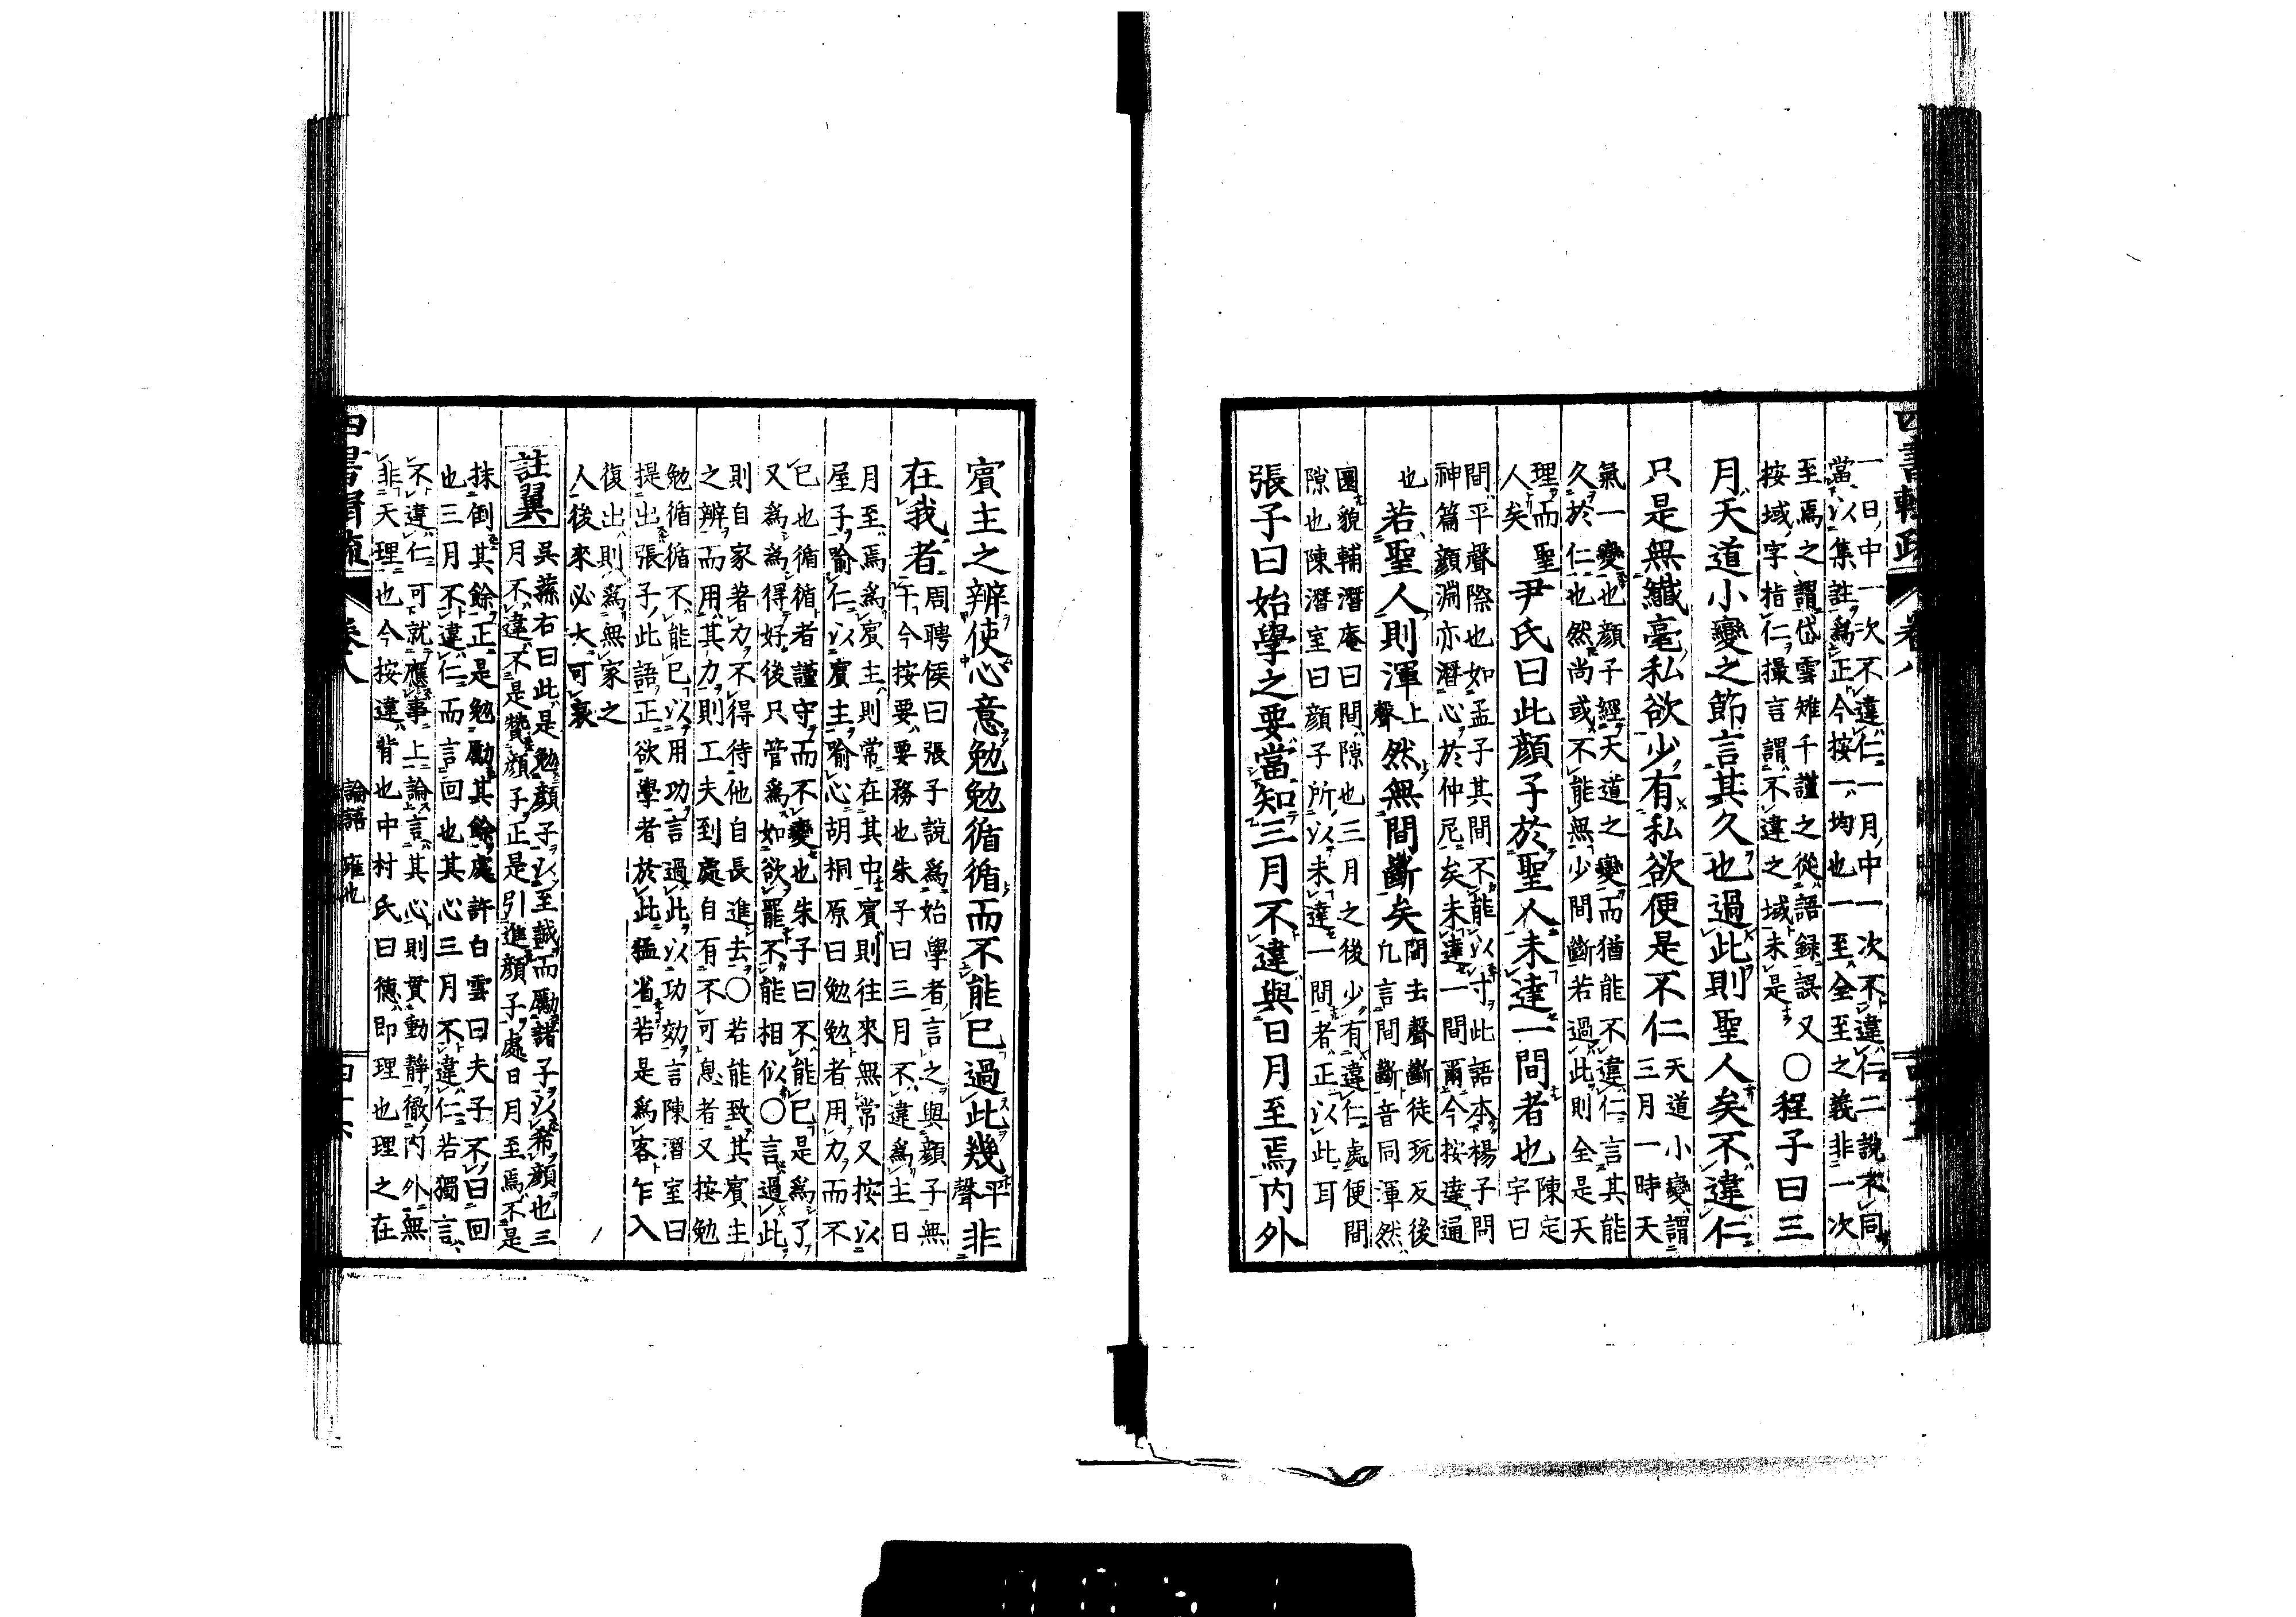 一日中一次不違仁一月中一次不違仁二說不同
當以集註爲正今按一均也一至全至之義非一次
至焉之謂岱雲雉千謹之從語録誤又
按域字指仁撮言謂不違之域未是
○程子曰三
月天道小變之節言其久也過此則聖人矣不違仁
只是無纎毫私欲少有私欲便是不仁
天道小變謂
三月一時天
氣一變也顔子經天道之變而猶能不違仁言其能
久於仁也然尚或不能無少間斷若過此則全是天
理而聖
人矣
尹氏曰此顔子於聖人未達一間者也
陳定
宇曰
間平聲際也如孟子其間不能以寸此語本楊子問
神篇顔淵亦潛心於仲尼矣未達一間爾今按達通
也
若聖人則渾
上
聲
然無間斷矣
間去聲斷徒玩反後
凢言間斷音同渾然
圜貌輔潛庵曰間隙也三月之後少有違仁處便間
隙也陳潛室曰顔子所以未達一間者正以此耳
張子曰始學之要當知三月不違與日月至焉内外
賓主之辨使心意勉勉循循而不能已過此幾
平
聲
非
在我者
周聘侯曰張子說爲始學者言之與顔子無
干今按要要務也朱子曰三月不違爲主日
月至焉爲賓主則常在其中賓則往來無常又按以
屋子喻仁以賓主喻心胡桐原曰勉勉者用力而不
已也循循者謹守而不變也朱子曰不能已是爲了
又爲爲得好後只管爲如欲罷不能相似○言過此
則自家著力不得待他自長進去○若能致其賓主
之辨而用其力則工夫到處自有不可息者又按勉
勉循循不能已以用功言過此以功効言陳潛室曰
提出張子此語正欲學者於此猛省若是爲客乍入
復出則爲無家之
人後來必大可哀
註翼
吳蓀右曰此是勉顔子以至誠而勵諸子以希顔也三
月不違不是贊顔子正是引進顔子處日月至焉不是
抹倒其餘正是勉勵其餘處許白雲曰夫子不曰回
也三月不違仁而言回也其心三月不違仁若獨言
不違仁可就應事上論言其心則貫動靜徹内外無
非天理也今按違背也中村氏曰德即理也理之在
卷八
論語 雍也